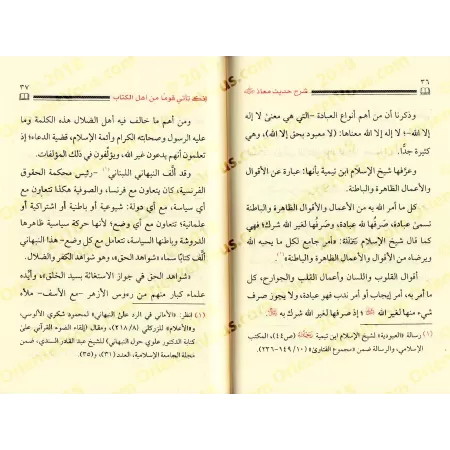 ٣٦
شرح حديث معاذ
وذكرنا أن من أهم أنواع العبادة -التي هي معنى لا إله
إلا الله-؛ لا إله إلا الله معناها: (لا معبود بحق إلا الله)، وهي
كثيرة جدًّا.
وعرَّفها شيخ الإسلام ابن تيمية بأنها: عبارة عن الأقوال
والأعمال الظاهرة والباطنة.
كل ما أمر الله به من الأعمال والأقوال الظاهرة والباطنة
تسمى عبادة، صَرفُها لله عبادة، وصَرفُها لغير الله شرك؛ فهي
كما قال شيخ الإسلام رَحِمَهُ اللهُ: «أمر جامع لكل ما يحبه الله
ويرضاه من الأقوال والأعمال الظاهرة والباطنة»(١).
أقوال القلوب واللسان وأعمال القلب والجوارح، كل
ما أمر به، أمر إيجاب أو أمر ندب فهو عبادة، ولا يجوز صرف
شيء منها لغير الله؛ إذ صرفها لغير الله شرك به
(١) رسالة «العبودية» لشيخ الإسلام ابن تيمية رَحِمَهُ اللهُ (ص٤٤)، المكتب
الإسلامي، والرسالة ضمن «مجموع الفتاوى» (١٠/ ١٤٩-٢٣٦)
٣٧
إنك تأتي قومًا من أهل الكتاب
ومن أهم ما خالف فيه أهل الضلال هذه الكلمة وما
عليه الرسول وصحابته الكرام وأئمة الإسلام، قضية الدعاء؛ إذ
تعلمون أنهم يدعون غير الله، ويؤلِّفون في ذلك المؤلفات.
وقد ألَّف النبهاني اللبناني(١) -رئيس محكمة الحقوق
الفرنسية، كان يتعاون مع فرنسا، والصوفية هكذا تتعاون مع
أي سياسة، مع أي دولة: شيوعية أو باطنية أو اشتراكية أو
علمانية؛ تتعاون مع أي وضع؛ لأنها حركة سياسية ظاهرها
الدروشة وباطنها السياسة، تتعامل مع كل وضع- هذا النبهاني
ألَّف كتابًا سماه: «شواهد الحق»، وهو شواهد الكفر والضلال.
«شواهد الحق في جواز الاستغاثة بسيد الخلق»، وأيَّده
علماء كبار منهم من رءوس الأزهر -مع الأسف- ملأه
(١) انظر: «الأماني في الرد على النبهاني» لمحمود شكري الألوسي،
و«الأعلام» للزركلي (٨/ ٢١٨)، ومقال: إلقاء الضوء القرآني على
كتابة الدكتور علوي حول النبهاني) للشيخ عبد القادر السندي، ضمن
مجلة الجامعة الإسلامية، العدد (٣١)، و(٣٥).